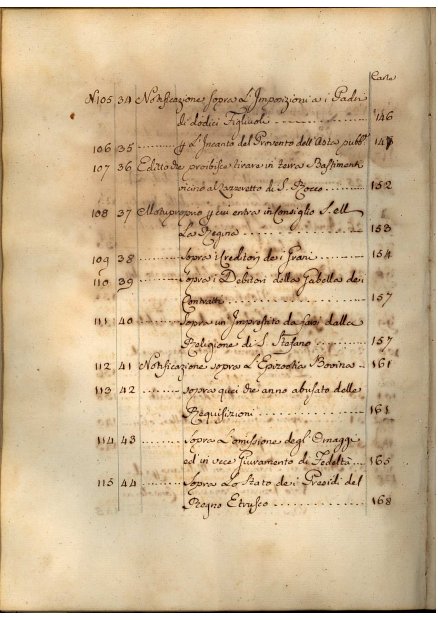 Carte
N 105 34 Notificazione sopra L'Imposizioni a i Padri
di dodici Figliuoli .......... 146
106 35 ........ p L'Incanto del Provento dell'Asta pubb.ca 147
107 36 Editto che proibisce tirare in terra Bastimenti
vicino al Lazzeretto di S. Rocco ......... 152
108 37 Motuproprio p cui entra in Consiglio S. M.
La Regina ............... 153
109 38 ........ Sopra i Creditori dei Grani ....... 154
110 39 ........ Sopra i Debitori della Gabella dei
Contratti ............. 157
111 40 ........ Sopra un Imprestito da farsi dalla
Religione di S. Stefano ......... 157
112 41 Notificazione sopra L'Epizootia Bovina .. 161
113 42 ........ sopra quei che anno abusato delle
Requisizioni ............ 161
114 43 ........ Sopra L'omissione degl'Omaggi
ed in vece Giuramento di Fedeltà ... 165
115 44 ........ Sopra Lo Stato dei Presidi del
Regno Etrusco ........... 168